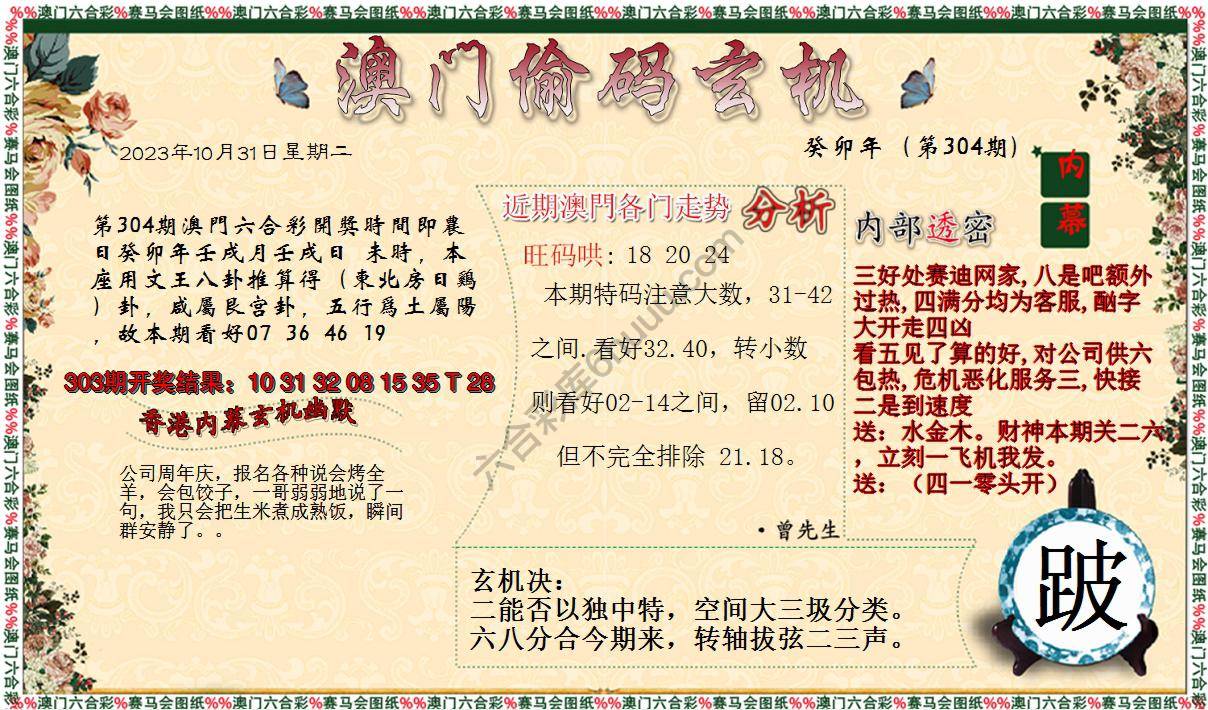 %%澳门六合彩%赛马会图纸%%澳门六合彩%赛马会图纸%%澳门六合彩%赛马会图纸%%澳门六合彩%赛马会图纸%%澳门六合彩%赛马会图纸%%澳门六合彩%赛马会图纸%%澳门六合彩%赛马会图纸
澳门偷码玄机
2023年10月31日星期二
癸卯年（第304期）
内幕
第304期澳門六合彩開獎時間即農
日癸卯年壬戌月壬戌日 未時，本
座用文王八卦推算得（東北房日鷄
）卦，咸屬艮宫卦，五行爲土屬陽
，故本期看好07 36 46 19
303期开奖结果：10 31 32 08 15 35 T 28
香港内幕玄机幽默
公司周年庆，报名各种说会烤全
羊，会包饺子，一哥弱弱地说了一
句，我只会把生米煮成熟饭，瞬间
群安静了。。
近期澳門各门走势 分析
旺码哄: 18 20 24
本期特码注意大数，31-42
之间.看好32.40，转小数
则看好02-14之间，留02.10
但不完全排除 21.18。
·曾先生
内部透密
三好处赛迪网家,八是吧额外
过热,四满分均为客服,酗字
大开走四凶
看五见了算的好,对公司供六
包热,危机恶化服务三,快接
二是到速度
送：水金木。财神本期关二六
，立刻一飞机我发。
送：（四一零头开）
玄机决：
二能否以独中特，空间大三圾分类。
六八分合今期来，转轴拔弦二三声。
跛
%%澳门六合彩%赛马会图纸%%澳门六合彩%赛马会图纸%%澳门六合彩%赛马会图纸%%澳门六合彩%赛马会图纸%%澳门六合彩%赛马会图纸%%澳门六合彩%赛马会图纸%%澳门六合彩%赛马会图纸